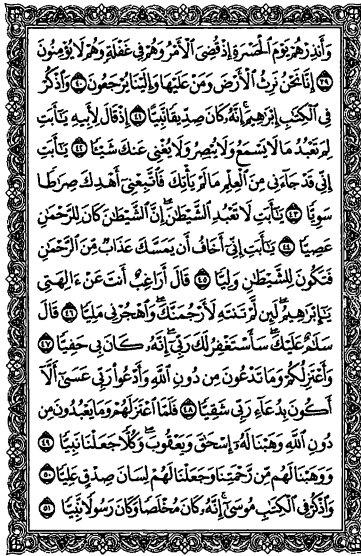 وَأَنذِرْهُمْ يَوْمَ الْحَسْرَةِ إِذْ قُضِيَ الْأَمْرُ وَهُمْ فِي غَفْلَةٍ وَهُمْ لَا يُؤْمِنُونَ
٣٩ إِنَّا نَحْنُ نَرِثُ الْأَرْضَ وَمَنْ عَلَيْهَا وَإِلَيْنَا يُرْجَعُونَ ٤٠ وَاذْكُرْ
فِي الْكِتَابِ إِبْرَاهِيمَ إِنَّهُ كَانَ صِدِّيقًا نَّبِيًّا ٤١ إِذْ قَالَ لِأَبِيهِ يَا أَبَتِ
لِمَ تَعْبُدُ مَا لَا يَسْمَعُ وَلَا يُبْصِرُ وَلَا يُغْنِي عَنكَ شَيْئًا ٤٢ يَا أَبَتِ
إِنِّي قَدْ جَاءَنِي مِنَ الْعِلْمِ مَا لَمْ يَأْتِكَ فَاتَّبِعْنِي أَهْدِكَ صِرَاطًا
سَوِيًّا ٤٣ يَا أَبَتِ لَا تَعْبُدِ الشَّيْطَانَ إِنَّ الشَّيْطَانَ كَانَ لِلرَّحْمَٰنِ
عَصِيًّا ٤٤ يَا أَبَتِ إِنِّي أَخَافُ أَن يَمَسَّكَ عَذَابٌ مِّنَ الرَّحْمَٰنِ
فَتَكُونَ لِلشَّيْطَانِ وَلِيًّا ٤٥ قَالَ أَرَاغِبٌ أَنتَ عَنْ آلِهَتِي
يَا إِبْرَاهِيمُ لَئِن لَّمْ تَنتَهِ لَأَرْجُمَنَّكَ وَاهْجُرْنِي مَلِيًّا ٤٦ قَالَ
سَلَامٌ عَلَيْكَ سَأَسْتَغْفِرُ لَكَ رَبِّي إِنَّهُ كَانَ بِي حَفِيًّا ٤٧
وَأَعْتَزِلُكُمْ وَمَا تَدْعُونَ مِن دُونِ اللَّهِ وَأَدْعُو رَبِّي عَسَىٰ أَلَّا
أَكُونَ بِدُعَاءِ رَبِّي شَقِيًّا ٤٨ فَلَمَّا اعْتَزَلَهُمْ وَمَا يَعْبُدُونَ مِن
دُونِ اللَّهِ وَهَبْنَا لَهُ إِسْحَاقَ وَيَعْقُوبَ وَكُلًّا جَعَلْنَا نَبِيًّا ٤٩
وَوَهَبْنَا لَهُم مِّن رَّحْمَتِنَا وَجَعَلْنَا لَهُمْ لِسَانَ صِدْقٍ عَلِيًّا ٥٠
وَاذْكُرْ فِي الْكِتَابِ مُوسَىٰ إِنَّهُ كَانَ مُخْلَصًا وَكَانَ رَسُولًا نَّبِيًّا ٥١